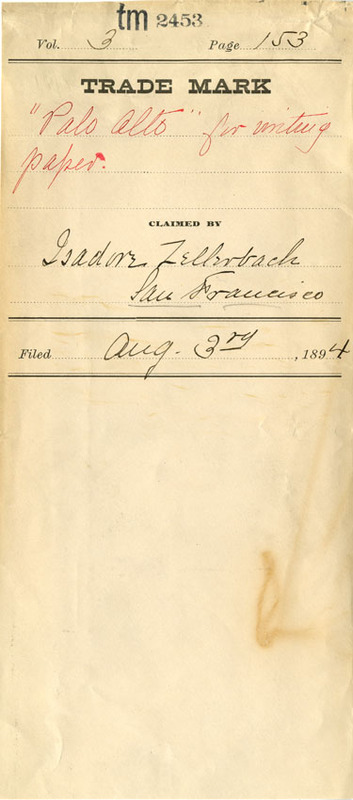 tm 2453
Vol. 3 Page 153
TRADE MARK
"Palo Alto" for writing
paper.
CLAIMED BY
Isadore Zellerbach
San Francisco
Filed Aug. 3rd, 1894